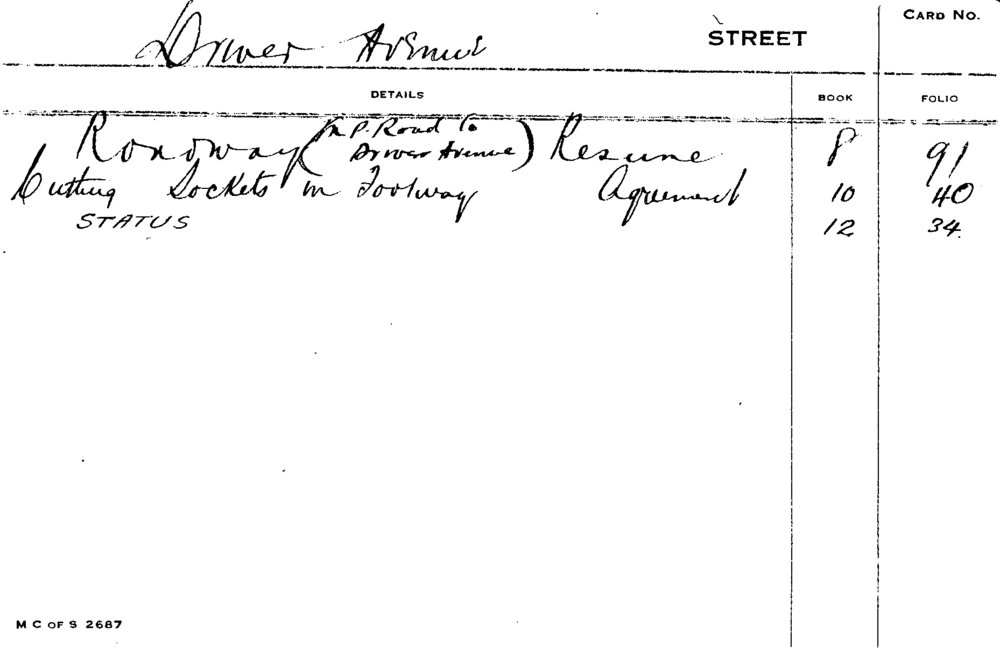 Driver Avenue STREET CARD NO.
DETAILS BOOK FOLIO
Roadway (M P. Road to Driver Avenue) Resume 8 91
Cutting Sockets in Footway Agreement 10 40
STATUS 12 34.
M C OF S 2687